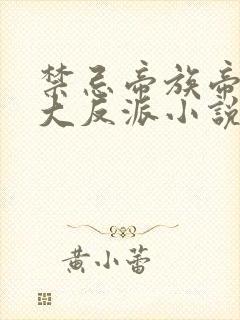 禁忌帝族帝
大反派小說
黄小蕾